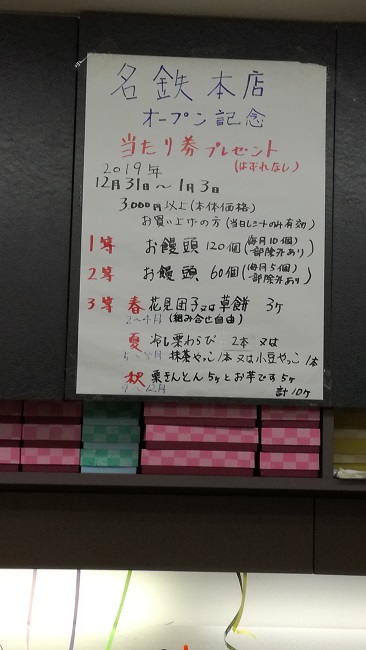 名鉄本店
オープン記念
当たり券プレゼント
(はずれなし)
2019年
12月31日～1月3日
3,000円以上(本体価格)
お買い上げの方(当日レシートのみ有効)
1等 お饅頭 120個(毎月10個)
一部除外あり
2等 お饅頭 60個(毎月5個)
一部除外あり
3等 春 花見団子又は草餅 3ケ
(組み合せ自由)
夏 冷し栗わらび 2本 又は
抹茶やっこ1本又は小豆やっこ1本
秋 栗きんとん5ケとお芋です5ケ
計10ケ